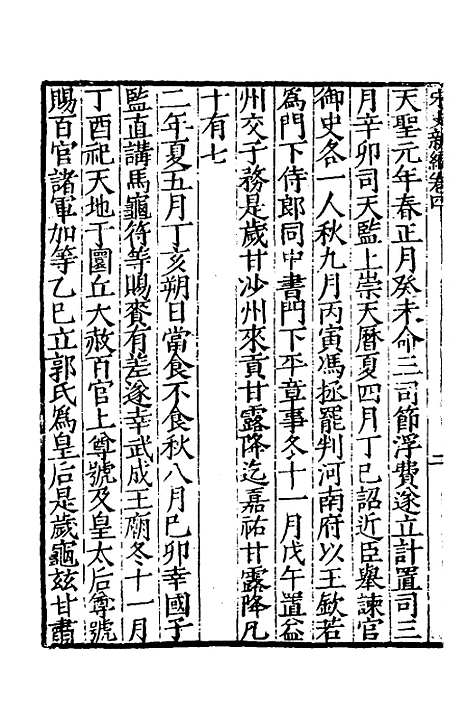 宋史新編卷四
二
天聖元年春正月癸未命三司節浮費遂立計置司三
月辛卯司天監上崇天曆夏四月丁巳詔近臣舉諫官
御史各一人秋九月丙寅馮拯罷判河南府以王欽若
爲門下侍郎同中書門下平章事冬十一月戊午置益
州交子務是歲甘沙州來貢甘露降迄嘉祐甘露降凡
十有七
二年夏五月丁亥朔日當食不食秋八月己卯幸國子
監直講馬龜符等賜賚有差遂幸武成王廟冬十一月
丁酉祀天地于圜丘大赦百官上尊號及皇太后尊號
賜百官諸軍加等乙巳立郭氏爲皇后是歲龜兹甘肅